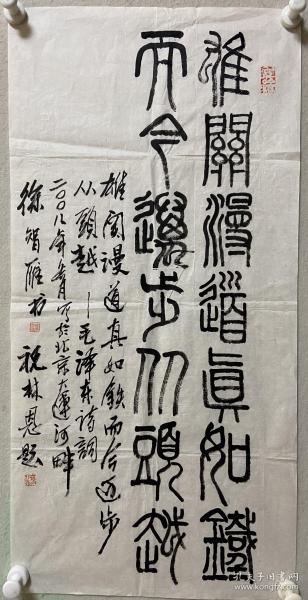 雄關漫道真如鐵
而今邁步从頭越
雄関漫道真如鉄而今迈步
从頭越——毛泽东詩詞
二〇〇八年
写於北京大运河畔
徐智雁书
祝林恩题
孔夫子旧书网